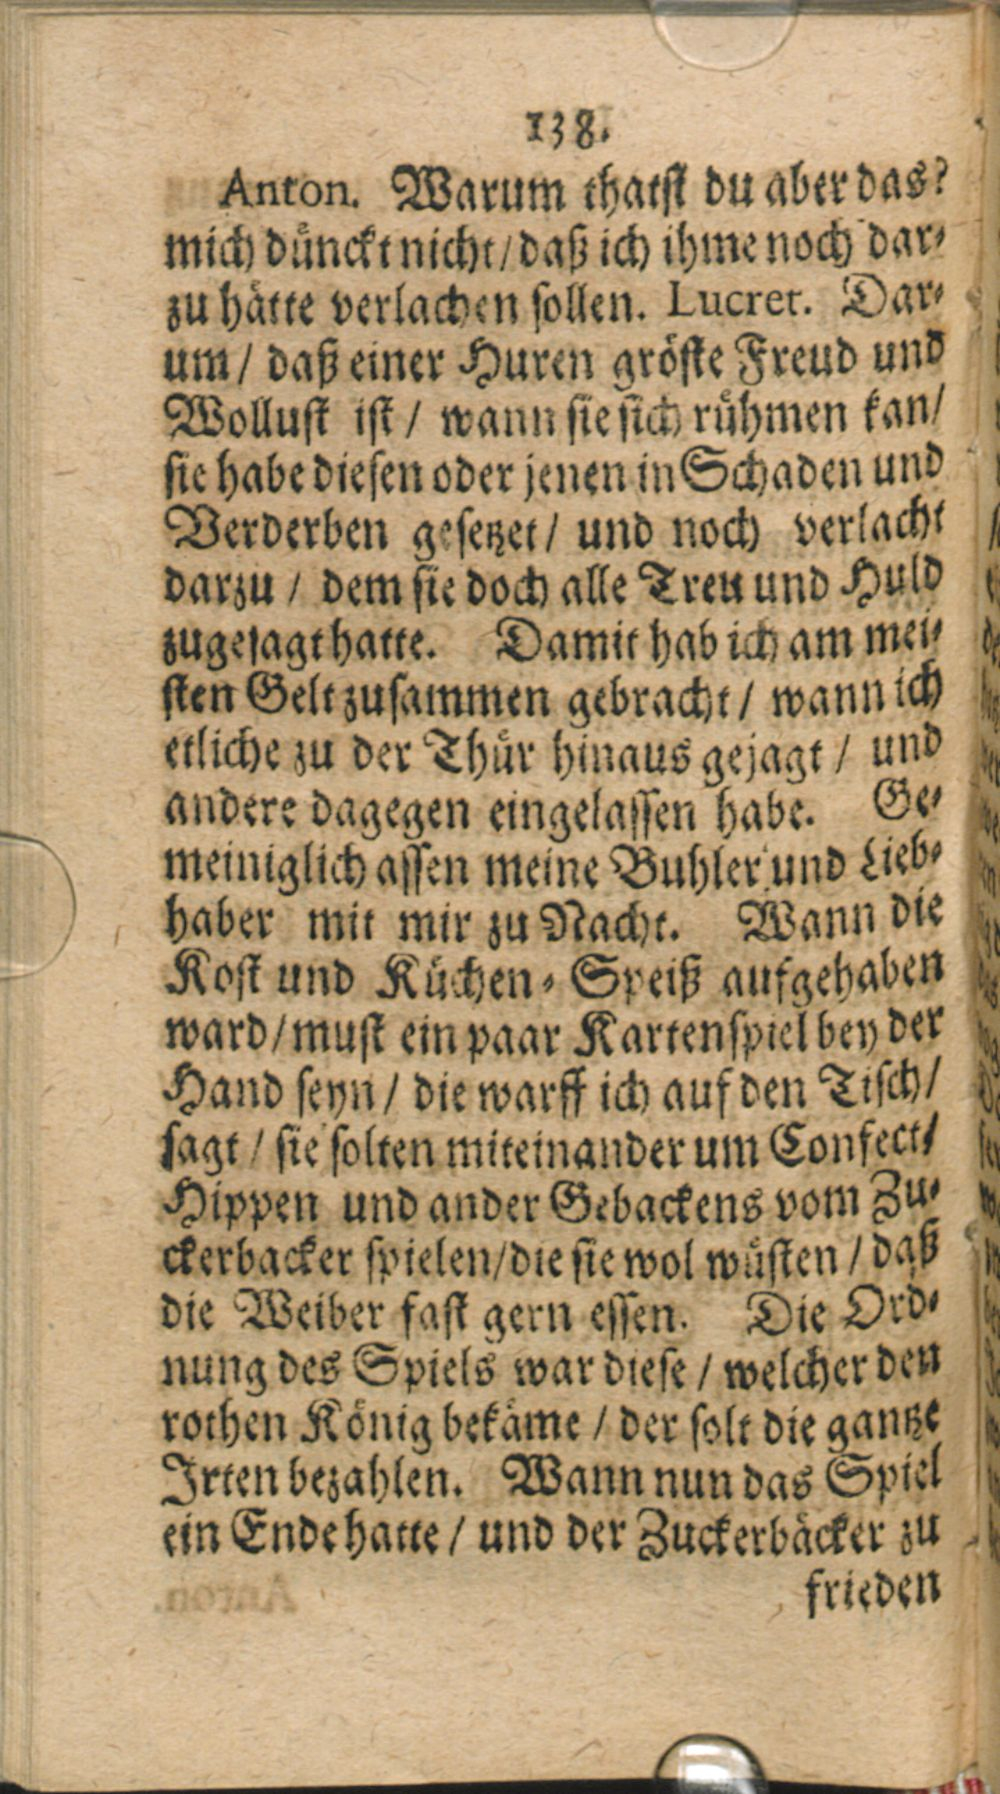 138.
Anton. Warum thatst du aber das?
mich dünckt nicht / daß ich ihme noch dar-
zu hätte verlachen sollen. Lucret. Dar-
um / daß einer Huren gröste Freud und
Wollust ist / wann sie sich rühmen kan /
sie habe diesen oder jenen in Schaden und
Verderben gesetzet / und noch verlacht
darzu / dem sie doch alle Treu und Huld
zugesagt hatte. Damit hab ich am mei-
sten Gelt zusammen gebracht / wann ich
etliche zu der Thür hinaus gejagt / und
andere dagegen eingelassen habe. Ge-
meiniglich assen meine Buhler und Lieb-
haber mit mir zu Nacht. Wann die
Kost und Küchen-Speiß aufgehaben
ward / must ein paar Kartenspiel bey der
Hand seyn / die warff ich auf den Tisch /
sagt / sie solten miteinander um Confect /
Hippen und ander Gebackens vom Zu-
ckerbacker spielen / die sie wol wüsten / daß
die Weiber fast gern essen. Die Ord-
nung des Spiels war diese / welcher den
rothen König bekäme / der solt die gantze
Irten bezahlen. Wann nun das Spiel
ein Ende hatte / und der Zuckerbäcker zu
frieden